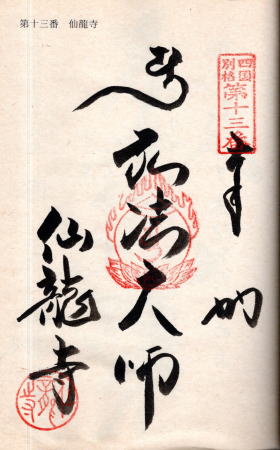 第十三番 仙龍寺
四国
別格
第十三番
奉納
弘法大師
仙龍寺